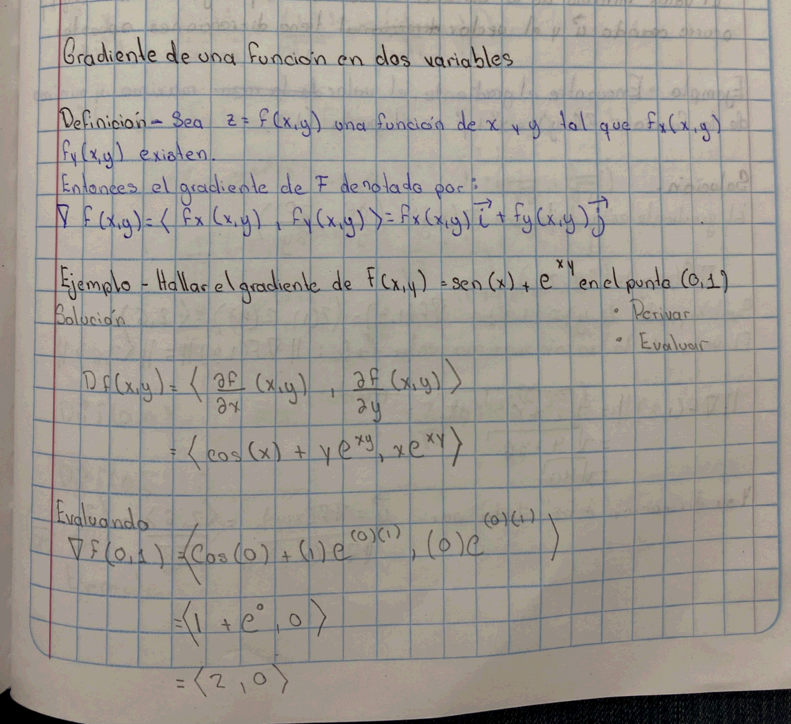 Gradiente de una función en dos variables
Definición - Sea z = f(x,y) una función de x y y tal que fx(x,y)
fy(x,y) existen.
Entonces el gradiente de F denotado por:
∇ f(x,y) = ⟨ fx (x,y) , fy (x,y) ⟩ = fx(x,y) i⃗ + fy(x,y) j⃗
Ejemplo - Hallar el gradiente de f(x,y) = sen(x) + e^xy en el punto (0,1)
Solución
• Derivar
• Evaluar
Df(x,y) = ⟨ ∂f/∂x (x,y) , ∂f/∂y (x,y) ⟩
= ⟨ cos(x) + y e^xy, x e^xy ⟩
Evaluando
∇f(0,1) = ⟨ Cos(0) + (1) e^(0)(1) , (0) e^(0)(1) ⟩
= ⟨ 1 + e° , 0 ⟩
= ⟨ 2 , 0 ⟩